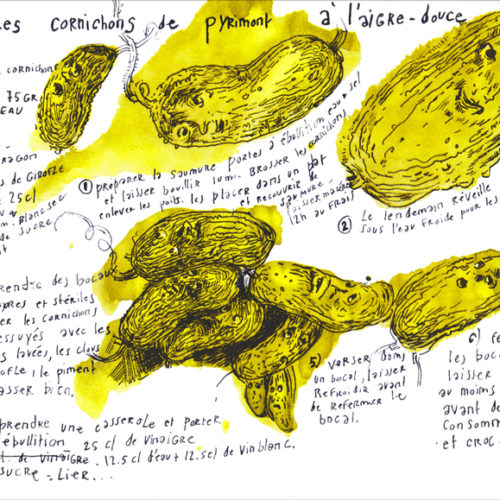 les CORNICHONS de PYRIMONT à l'AIGRE-DOUCE
cornichons
75 GR.
EAU
RAGON
de GIROFLE
25 cl
BLANC sec
de SUCRE
① préparer la saumure portes à ébullition eau + sel
et laisser bouillir 1 min. Brosser les cornichons
enlever les poils. les placer dans un plat
et recouvrir de
saumure
laisser macérer
12h au frais
② Le lendemain réveille
sous l'eau froide pour les
rendre des bocaux
pres et stériles
er les cornichons
essuyés avec les
s lavées, les clous
ofle, le piment
asser bien.
prendre une casserole et porter
ébullition 25 cl de vinaigre
. 12.5 cl d'eau + 12,5cl de vin blanc.
sucre - lier...
5) verser dans
un bocal, laisser
refroidir avant
de refermer le
bocal.
6)
les boca
laisser
au moins
avant de
consomm
. et croc